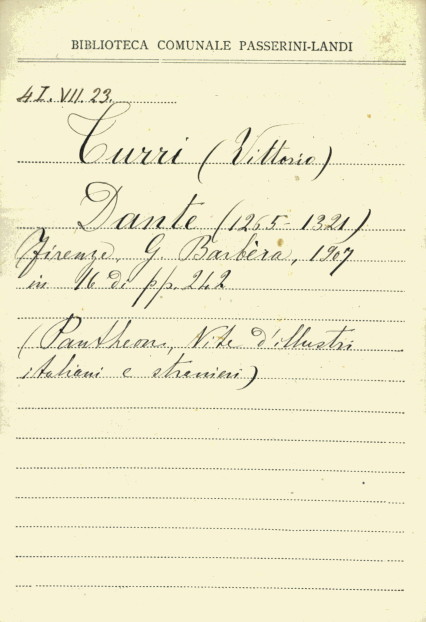 BIBLIOTECA COMUNALE PASSERINI-LANDI
4I.VII.23.
Turri (Vittorio)
Dante (1265-1321)
Firenze, G. Barbèra, 1907
in 16 di pp. 242
(Pantheon, Vite d'illustri
italiani e stranieri)